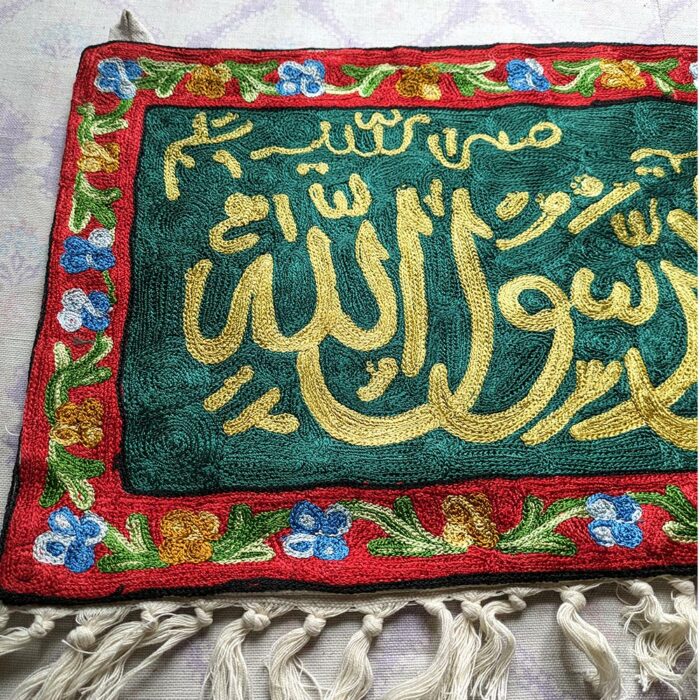 صلى الله عليه وسلم
رسول الله